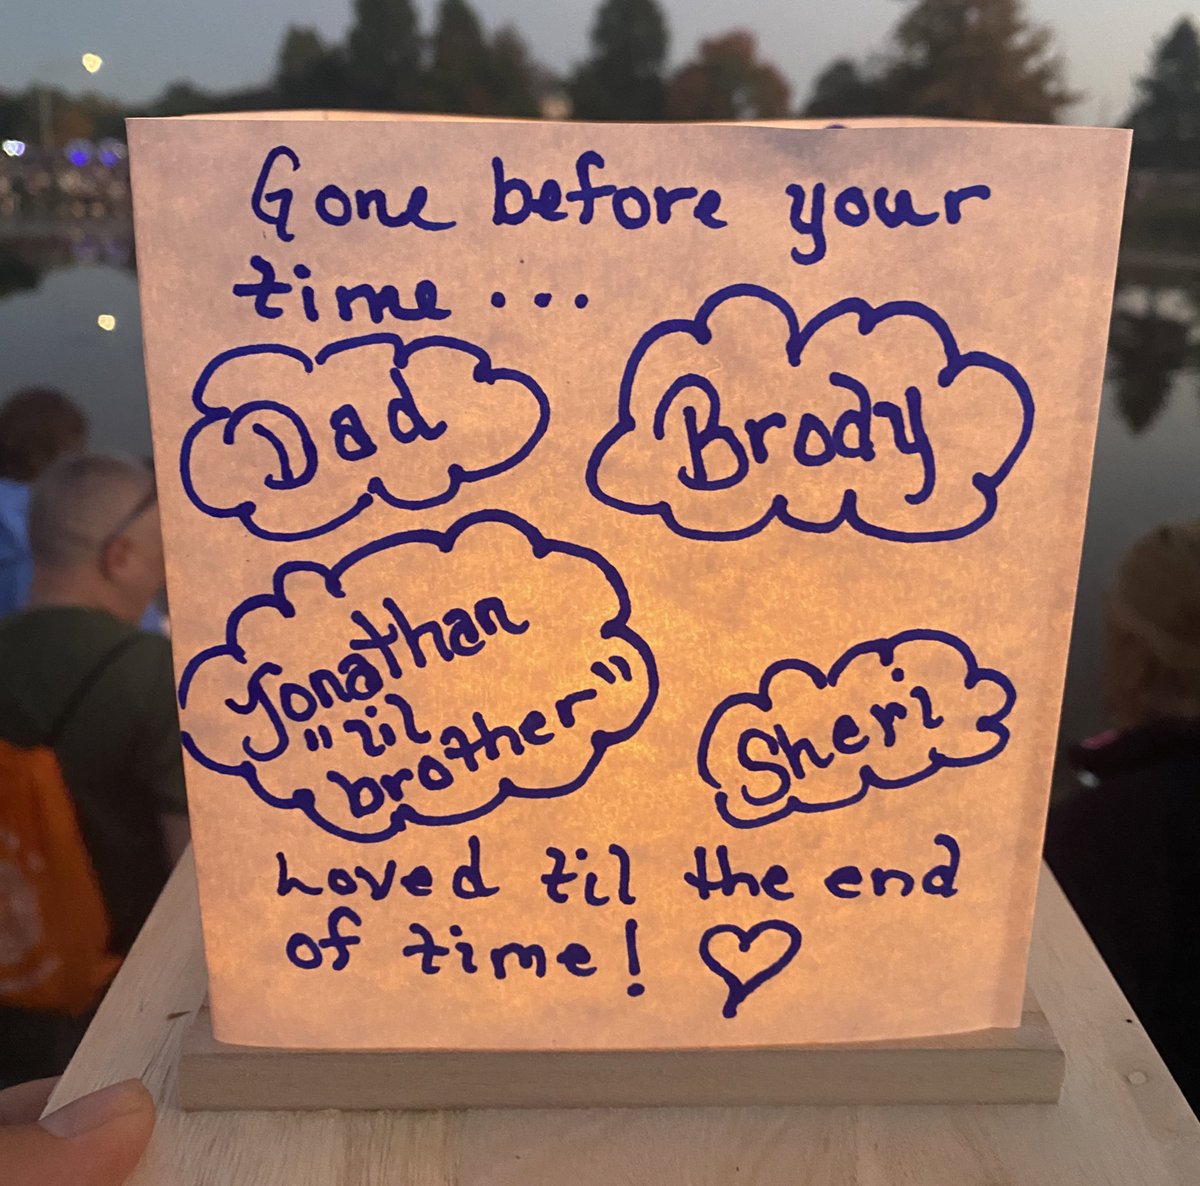 Gone before your
time...
Dad
Brody
Jonathan
"lil
brother"
Sheri
Loved til the end
of time!